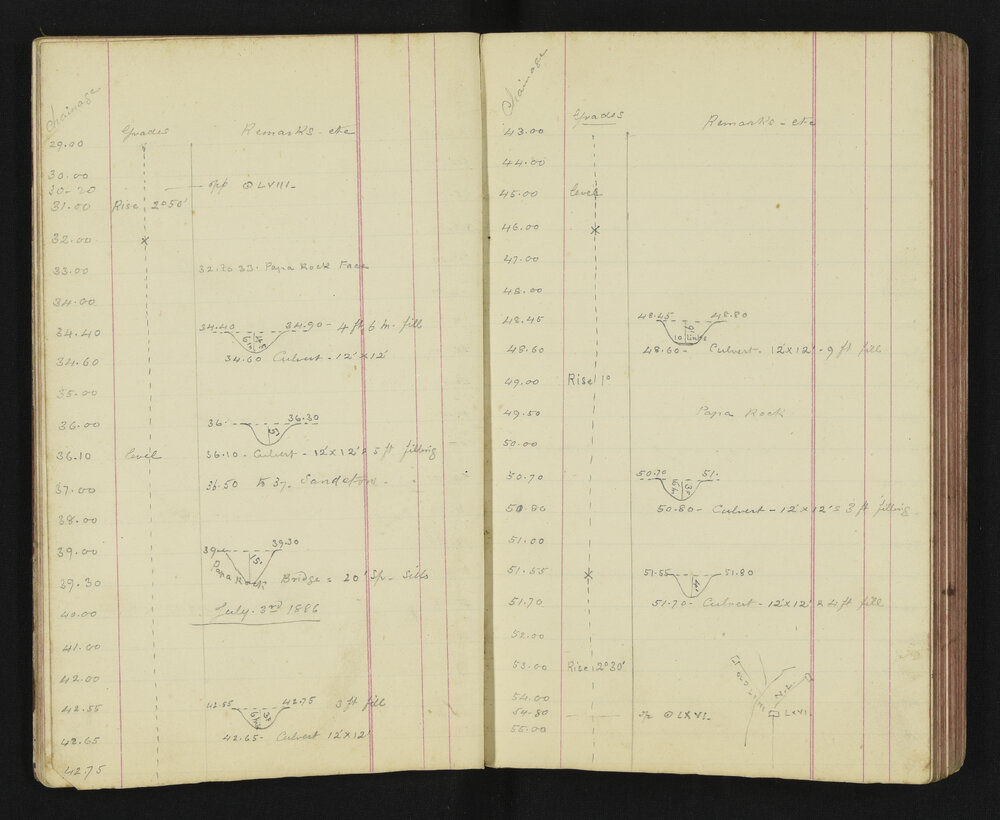 Chainage
Grades Remarks - etc
29.00
30.00
30-20 opp ⊙ LVIII.
31.00 Rise 2°50'
32.00
33.00 32. to 33. Papa Rock Face
34.00
34.40 34.40 34.90 - 4 ft 6 in. fill
34.60 34.60 Culvert - 12' x 12'
35.00
36.00 36. 36.30
36.10 level 36.10 - Culvert - 12' x 12' 5 ft filling
37.00 36.50 to 37.
38.00
39.00 39. 39.30
Papa Rock
39.30 Bridge = 20' Sp- Sills
40.00 July. 3rd 1886
41.00
42.00
42.55 42.55 42.75 3 ft fill
42.65 42.65- Culvert 12' x 12'
42.75
Chainage
Grades Remarks - etc
43.00
44.00
45.00 level
46.00
47.00
48.00
48.45 48.45 48.80
10 links
48.60 48.60 - Culvert - 12' x 12' - 9 ft fill
49.00 Rise 1°
49.50 Papa Rock
50.00
50.70 50.70 51.
50.80 50.80 - Culvert - 12' x 12' 3 ft filling
51.00
51.55 51.55 51.80
4'
51.70 51.70 - Culvert - 12' x 12' 4 ft fill
52.00
53.00 Rise 2°30'
54.00
54-80 ⊙ LXVI.
LXVI.
55.00